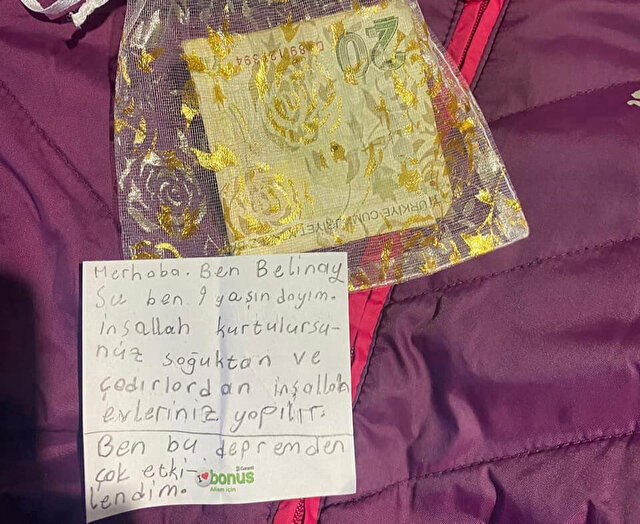 20
TÜRKİYE CUMHURİYET
Merhaba. Ben Belinay
Su ben 9 yaşındayım.
inşallah kurtulursu-
nuz soğuktan ve
çadırlardan inşallah
evleriniz yapılır.
Ben bu depremden
çok etki-
lendim.
Garanti
bonus
Ailem için